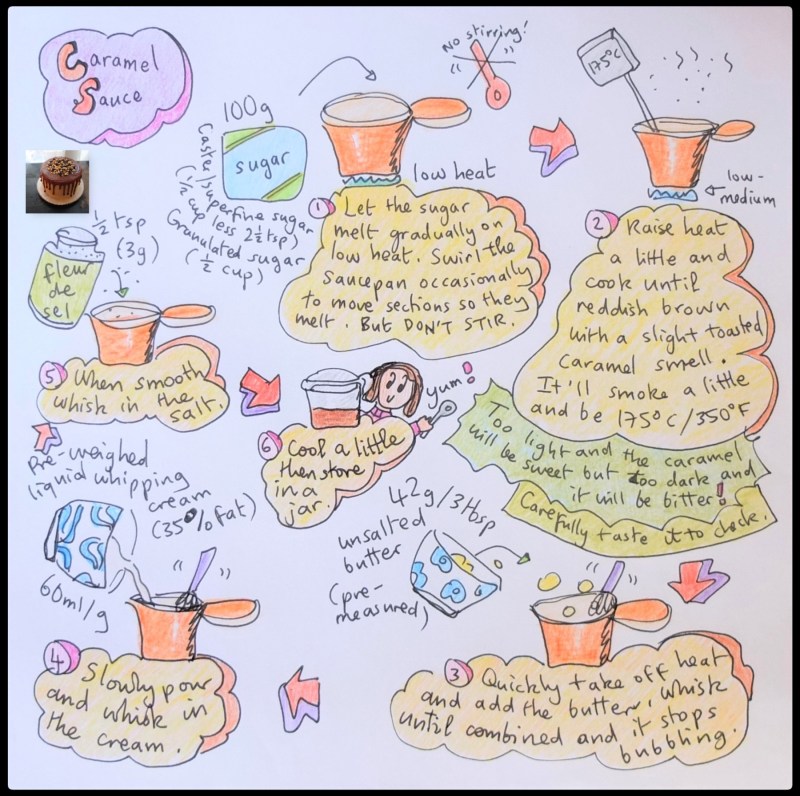 Caramel
Sauce
100g
sugar
Caster/superfine sugar
(1/2 cup less 2 1/2 tsp)
Granulated sugar
(1/2 cup)
No stirring!
low heat
1 Let the sugar
melt gradually on
low heat. Swirl the
saucepan occasionally
to move sections so they
melt. But DON'T STIR.
175°C
low-
medium
2 Raise heat
a little and
cook until
reddish brown
with a slight toasted
caramel smell.
It'll smoke a little
and be 175°C/350°F
Too light and the caramel
will be sweet but too dark and
it will be bitter!
Carefully taste it to check.
42g/3tbsp
unsalted
butter
(pre-
measured)
3 Quickly take off heat
and add the butter, whisk
until combined and it stops
bubbling.
Pre-weighed
liquid whipping
cream
(35% fat)
60ml/g
4 Slowly pour
and whisk in
the cream.
1/2 tsp
(3g)
fleur
de
sel
5 When smooth
whisk in the
salt.
yum!
6 Cool a little
then store
in a
jar.